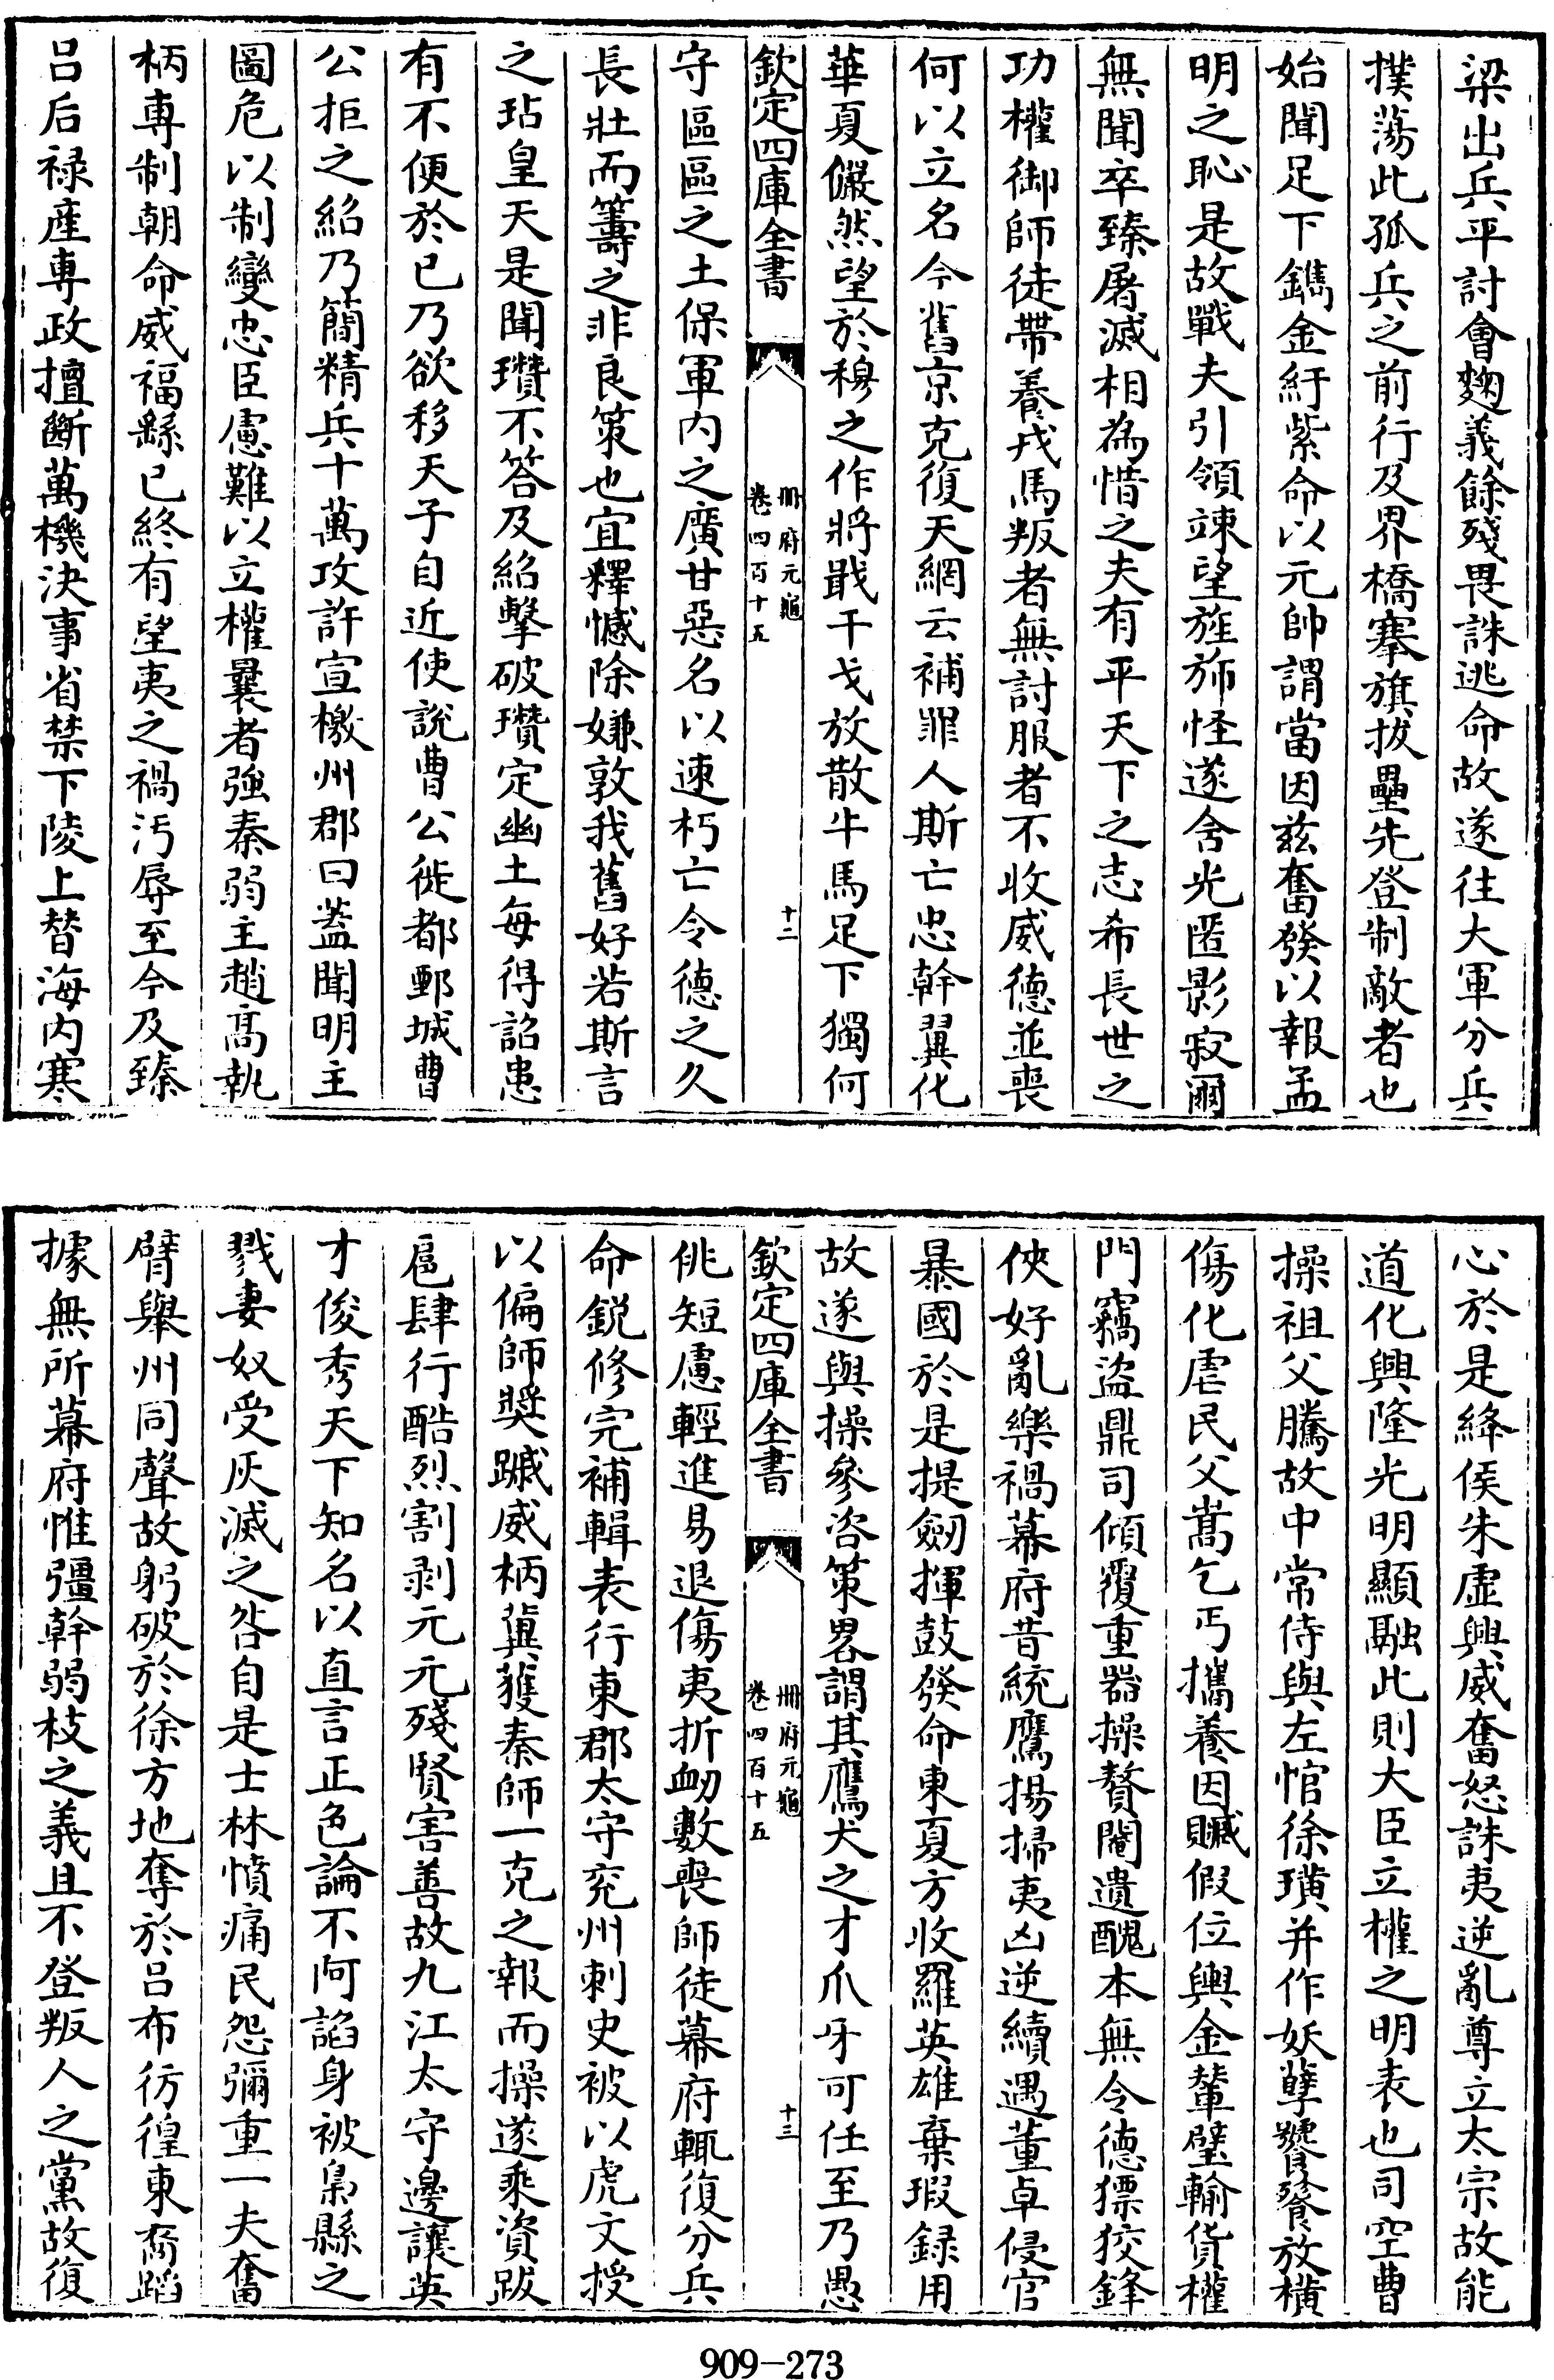 梁出兵平討會麴義餘殘畏誅逃命故遂往大軍分兵
撲蕩此孤兵之前行及界橋搴旗拔壘先登制敵者也
始聞足下鐫金紆紫命以元帥謂當因兹奮發以報孟
明之恥是故戰夫引領竦望旌斾怪遂含光匿影寂爾
無聞卒臻屠滅相為惜之夫有平天下之志希長世之
功權御師徒帶養戎馬叛者無討服者不收威德並喪
何以立名今舊京克復天網云補罪人斯亡忠幹翼化
華夏儼然望於穆之作將戢干戈放散牛馬足下獨何
欽定四庫全書
冊府元龜
卷四百十五
十二
守區區之土保軍内之廣甘惡名以速朽亡令德之久
長壯而籌之非良策也宜釋憾除嫌敦我舊好若斯言
之玷皇天是聞瓚不答及紹擊破瓚定幽土每得詔患
有不便於已乃欲移天子自近使說曹公徙都鄄城曹
公拒之紹乃簡精兵十萬攻許宣檄州郡曰蓋聞明主
圖危以制變忠臣慮難以立權曩者強秦弱主趙髙執
柄専制朝命威福繇已終有望夷之禍汚辱至今及臻
吕后禄産専政擅斷萬機決事省禁下陵上替海内寒
心於是絳侯朱虚興威奮怒誅夷逆亂尊立太宗故能
道化興隆光明顯融此則大臣立權之明表也司空曹
操祖父騰故中常侍與左悺徐璜并作妖孽饕餮放橫
傷化虐民父嵩乞丐攜養因贓假位輿金輦璧輸貨權
門竊盜鼎司傾覆重器操贅閹遺醜本無令德獧狡鋒
俠好亂樂禍幕府昔統鷹揚掃夷凶逆續遇董卓侵官
暴國於是提劒揮鼓發命東夏方收羅英雄棄瑕録用
故遂與操參咨策畧謂其鷹犬之才爪牙可任至乃愚
欽定四庫全書
冊府元龜
卷四百十五
十三
佻短慮輕進易退傷夷折衂數喪師徒幕府輒復分兵
命銳修完補輯表行東郡太守兖州刺史被以虎文授
以偏師奬蹴威柄冀獲秦師一克之報而操遂乘資跋
扈肆行酷烈割剥元元殘賢害善故九江太守邊讓英
才俊秀天下知名以直言正色論不阿諂身被梟縣之
戮妻奴受灰滅之咎自是士林憤痛民怨彌重一夫奮
臂舉州同聲故躬破於徐方地奪於吕布彷徨東裔蹈
據無所幕府惟彊幹弱枝之義且不登叛人之黨故復
909-273